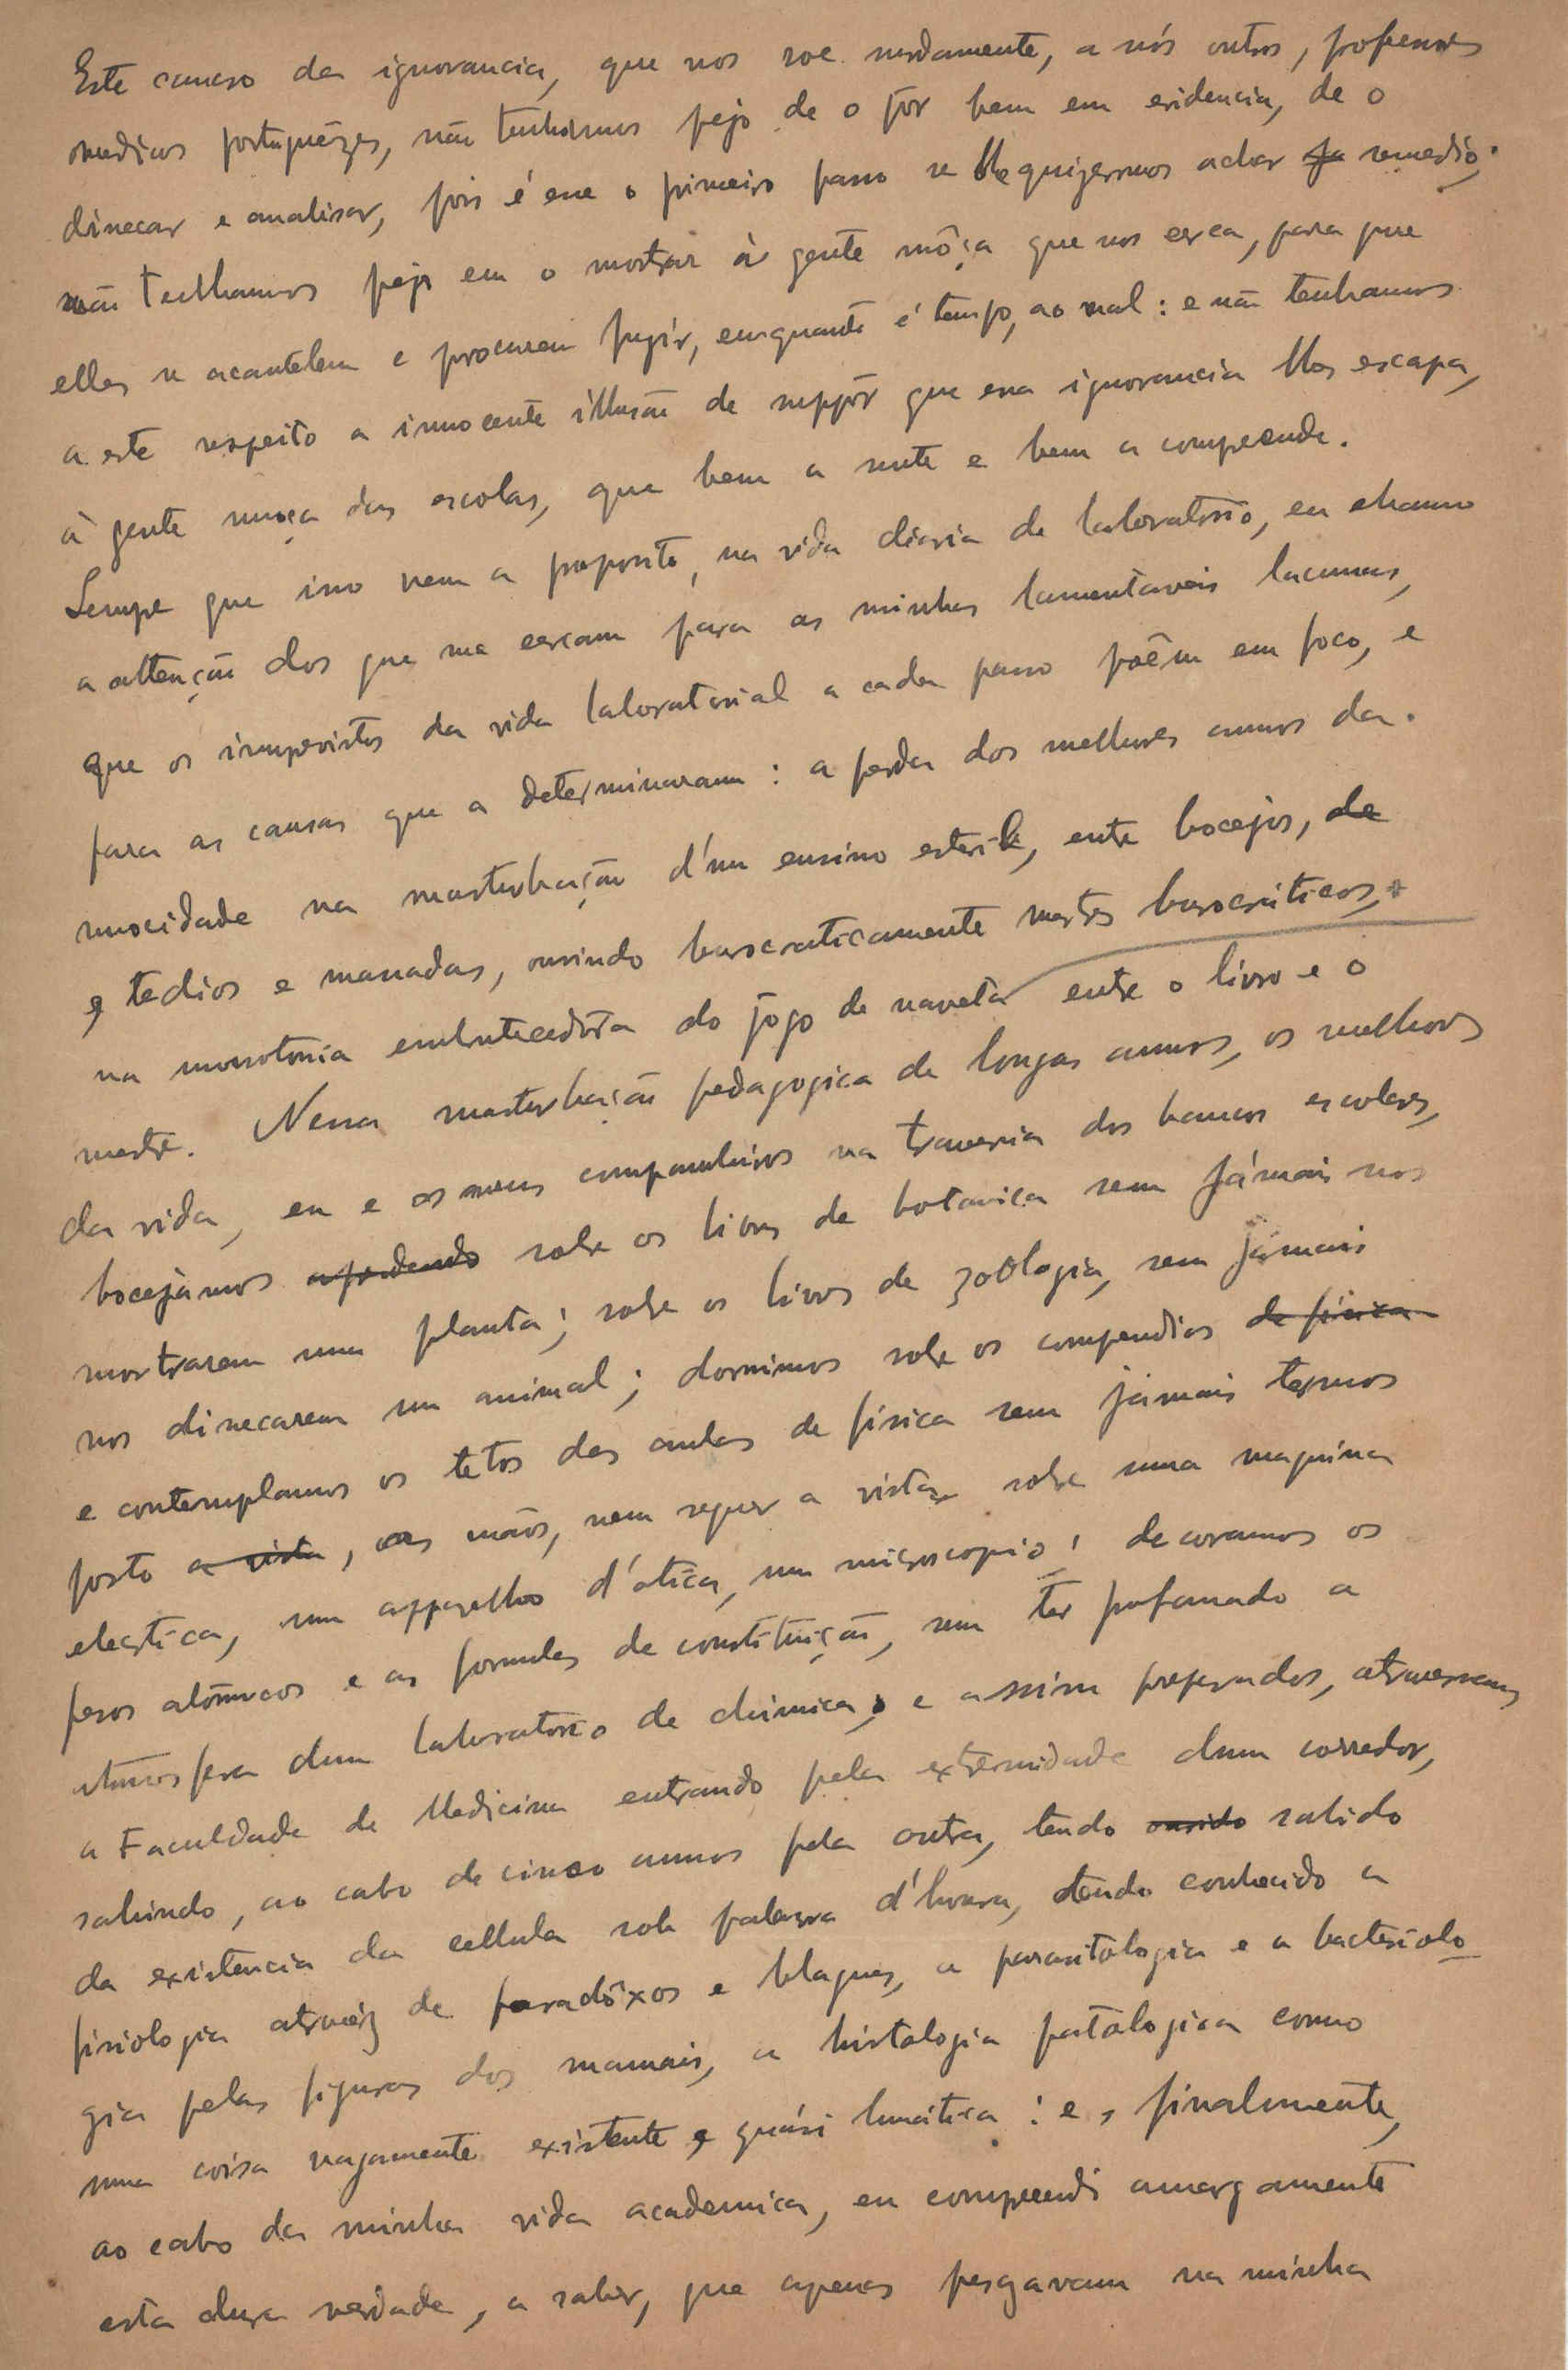 Este cancro da ignorancia, que nos roe surdamente, a nós outros, professores
medicos portuguêzes, não tenhamos pejo de o pôr bem em evidencia, de o
dissecar e analisar, pois é esse o primeiro passo se lhe quizermos achar remedio;
não tenhamos pejo em o mostrar á gente môça que nos cerca, para que
elles se acautelem e procurem fugir, emquanto é tempo, ao mal: e não tenhamos
a este respeito a innocente illusão de suppôr que essa ignorancia lhes escapa,
á gente moça das escolas, que bem a sente e bem a compreende.
Sempre que isso vem a proposito, na vida diaria de laboratorio, eu chamo
a attenção dos que me cercam para as minhas lamentaveis lacunas,
que os imprevistos da vida laboratorial a cada passo põem em foco, e
para as causas que a determinaram: a perda dos melhores annos da
mocidade na masturbação d'um ensino esteril, entre bocejos, de
e tedios e massadas, ouvindo burocraticamente mestres burocráticos,
na monotonia embrutecedora do jogo de naveta entre o livro e o
mestre. Nessa masturbação pedagogica de longos annos, os melhores
da vida, eu e os meus companheiros na travessia dos bancos escolares,
bocejámos aprendendo sobre os livros de botanica sem jámais nos
mostrarem uma planta; sobre os livros de zoologia, sem jámais
nos dissecarem um animal; dormimos sobre os compendios de física
e contemplamos os tetos das aulas de física sem jámais termos
posto a vista, as mãos, nem sequer a vista sobre uma maquina
electrica, um apparelho d'otica, um microscopio; decoramos os
pesos atómicos e as formulas de constituição, sem ter profanado a
atmosfera dum laboratorio de chimica; e assim preparados, atravessamos
a Faculdade de Medicina entrando pela extremidade dum corredor,
sahindo, ao cabo de cinco annos pela outra, tendo ouvido sabido
da existencia da cellula sob palavra d'honra, tendo conhecido a
fisiologia atravéz de paradôxos e blagues, a parasitologia e a bacteriolo
gia pelas figuras dos manuais, a histologia patologica como
uma coisa vagamente existente e quási lunática: e, finalmente,
ao cabo da minha vida academica, eu compreendi amargamente
esta dura verdade, a saber, que apenas pesavam na minha